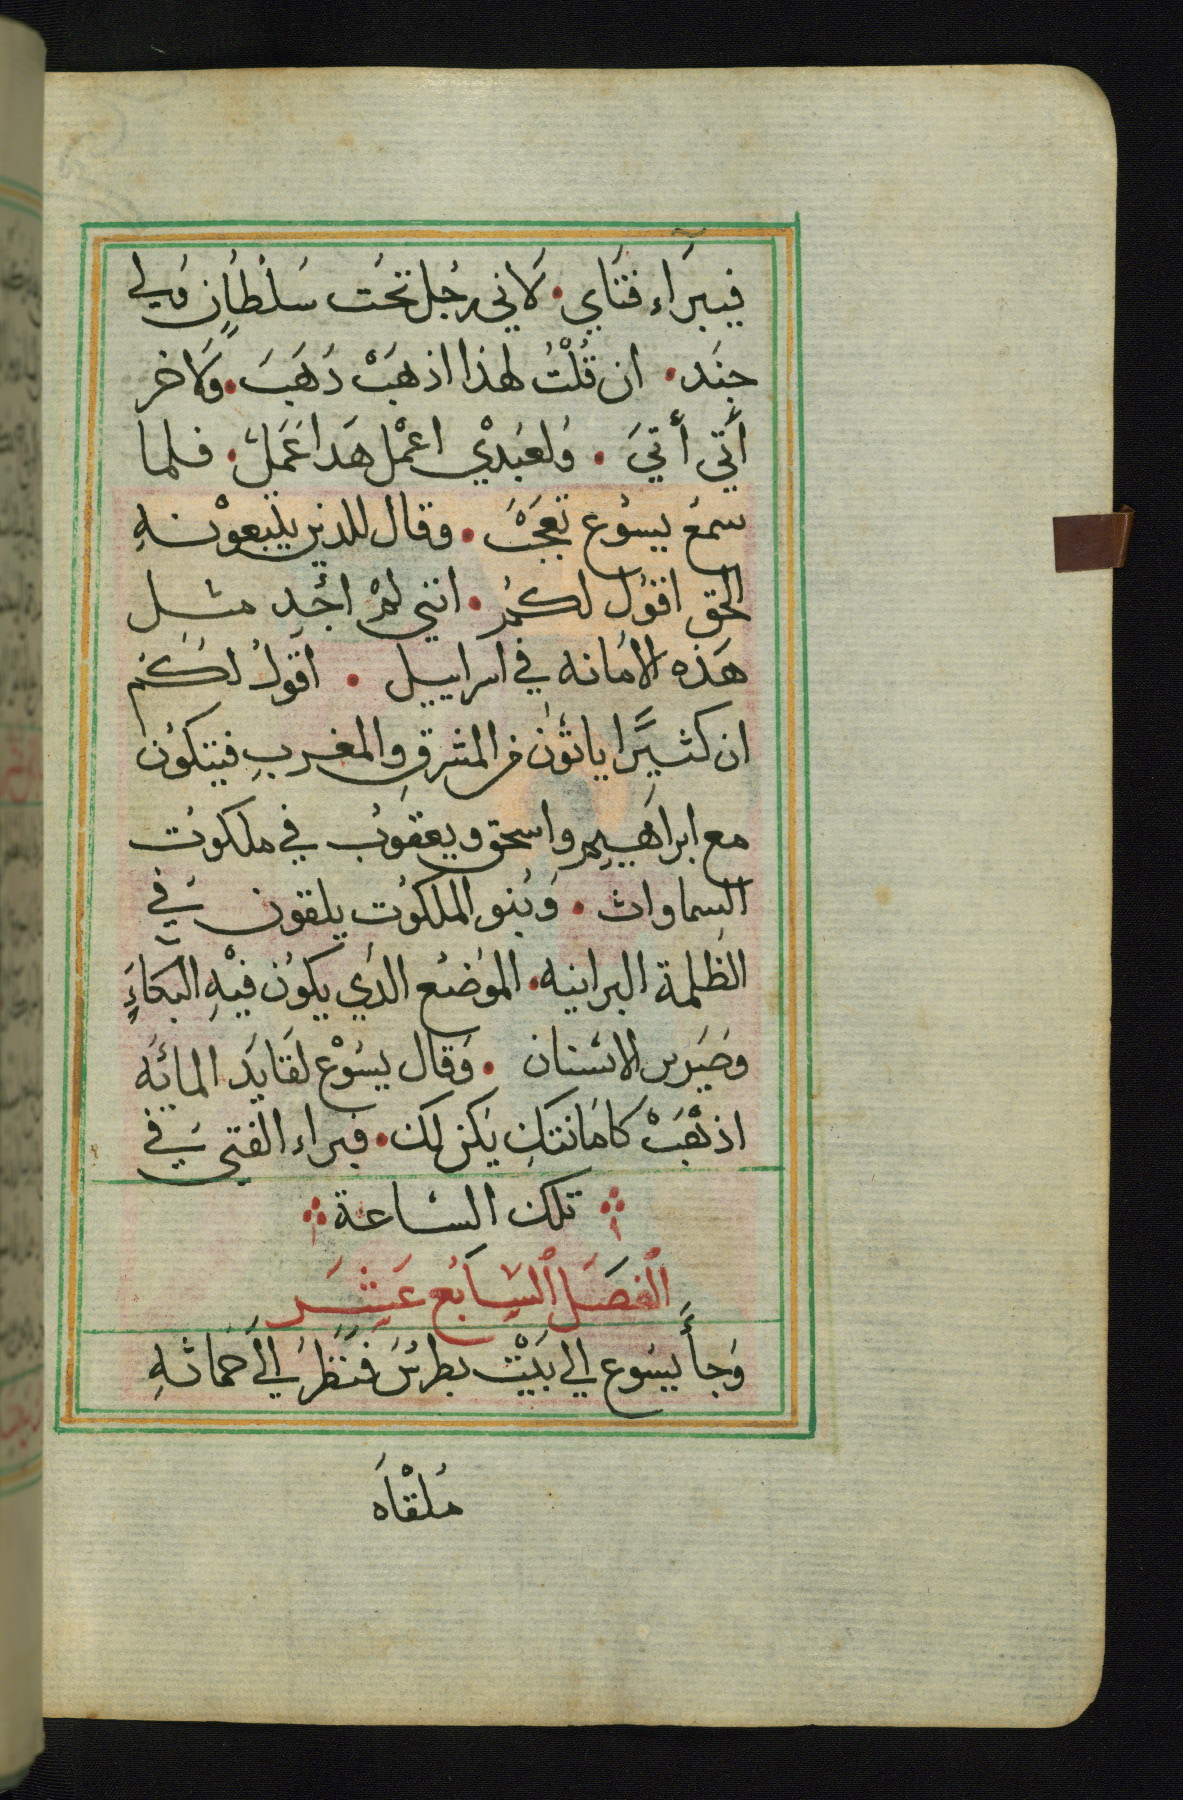 فيبرَاء فتَاي • لَاني رجُل تحَت سَلْطٍاُن وَلي
جنَد • ان قُلْتُ لهذا اذهَبْ دَهَبَ • وَلاخر
أتي أَتيَ • وُلعَبْدْي اعْمْل هَدا عَمَلْ • فلما
سمعُ يسوُع تعَجَبْ • وقال للدين يتْبعوْنهِ
الحق اقوُل لكمُ • انني لمْ اجُدِ مثل
هَذه الامَانه في اسراييل • اقَولُ لكُم
ان كثيرًا ياتوْن من المشرقِ والمغربِ فيتكوُن
مع ابراهَيمِ واسحق ويعقوبُ في ملكوُت
السماوات • وَبُنو الملكوُت يلقون في
الظلمة البرانيه • الموُضعُ الدُي يكوُن فيْهِ البَكاءَ
وصَرير الاسنان • وَقال يسَوْع لقَايدَ المائَه
اذهَبْ كامَانتكِ يَكن لك • فبراء الفتي في
تلك الساعة
الفصَل السَابعُ عَشَر
وَجأَ يسُوع الي بَيْت بطرسُ فنَظرَ اليَ حمَاتهِ
مُلْقاَه